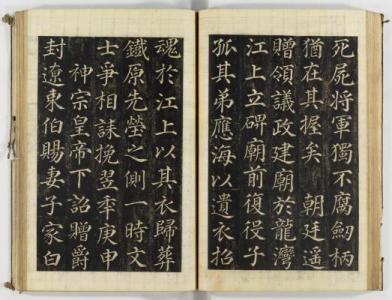 死屍將軍獨不腐劒柄
猶在其握矣 朝廷遥
贈領議政建廟於龍灣
江上立碑廟前復役子
孤其弟應海以遺衣招
魂於江上以其衣歸葬
鐵原先塋之側一時文
士爭相誄挽翌年庚申
神宗皇帝下詔贈爵
封遼東伯賜妻子家白